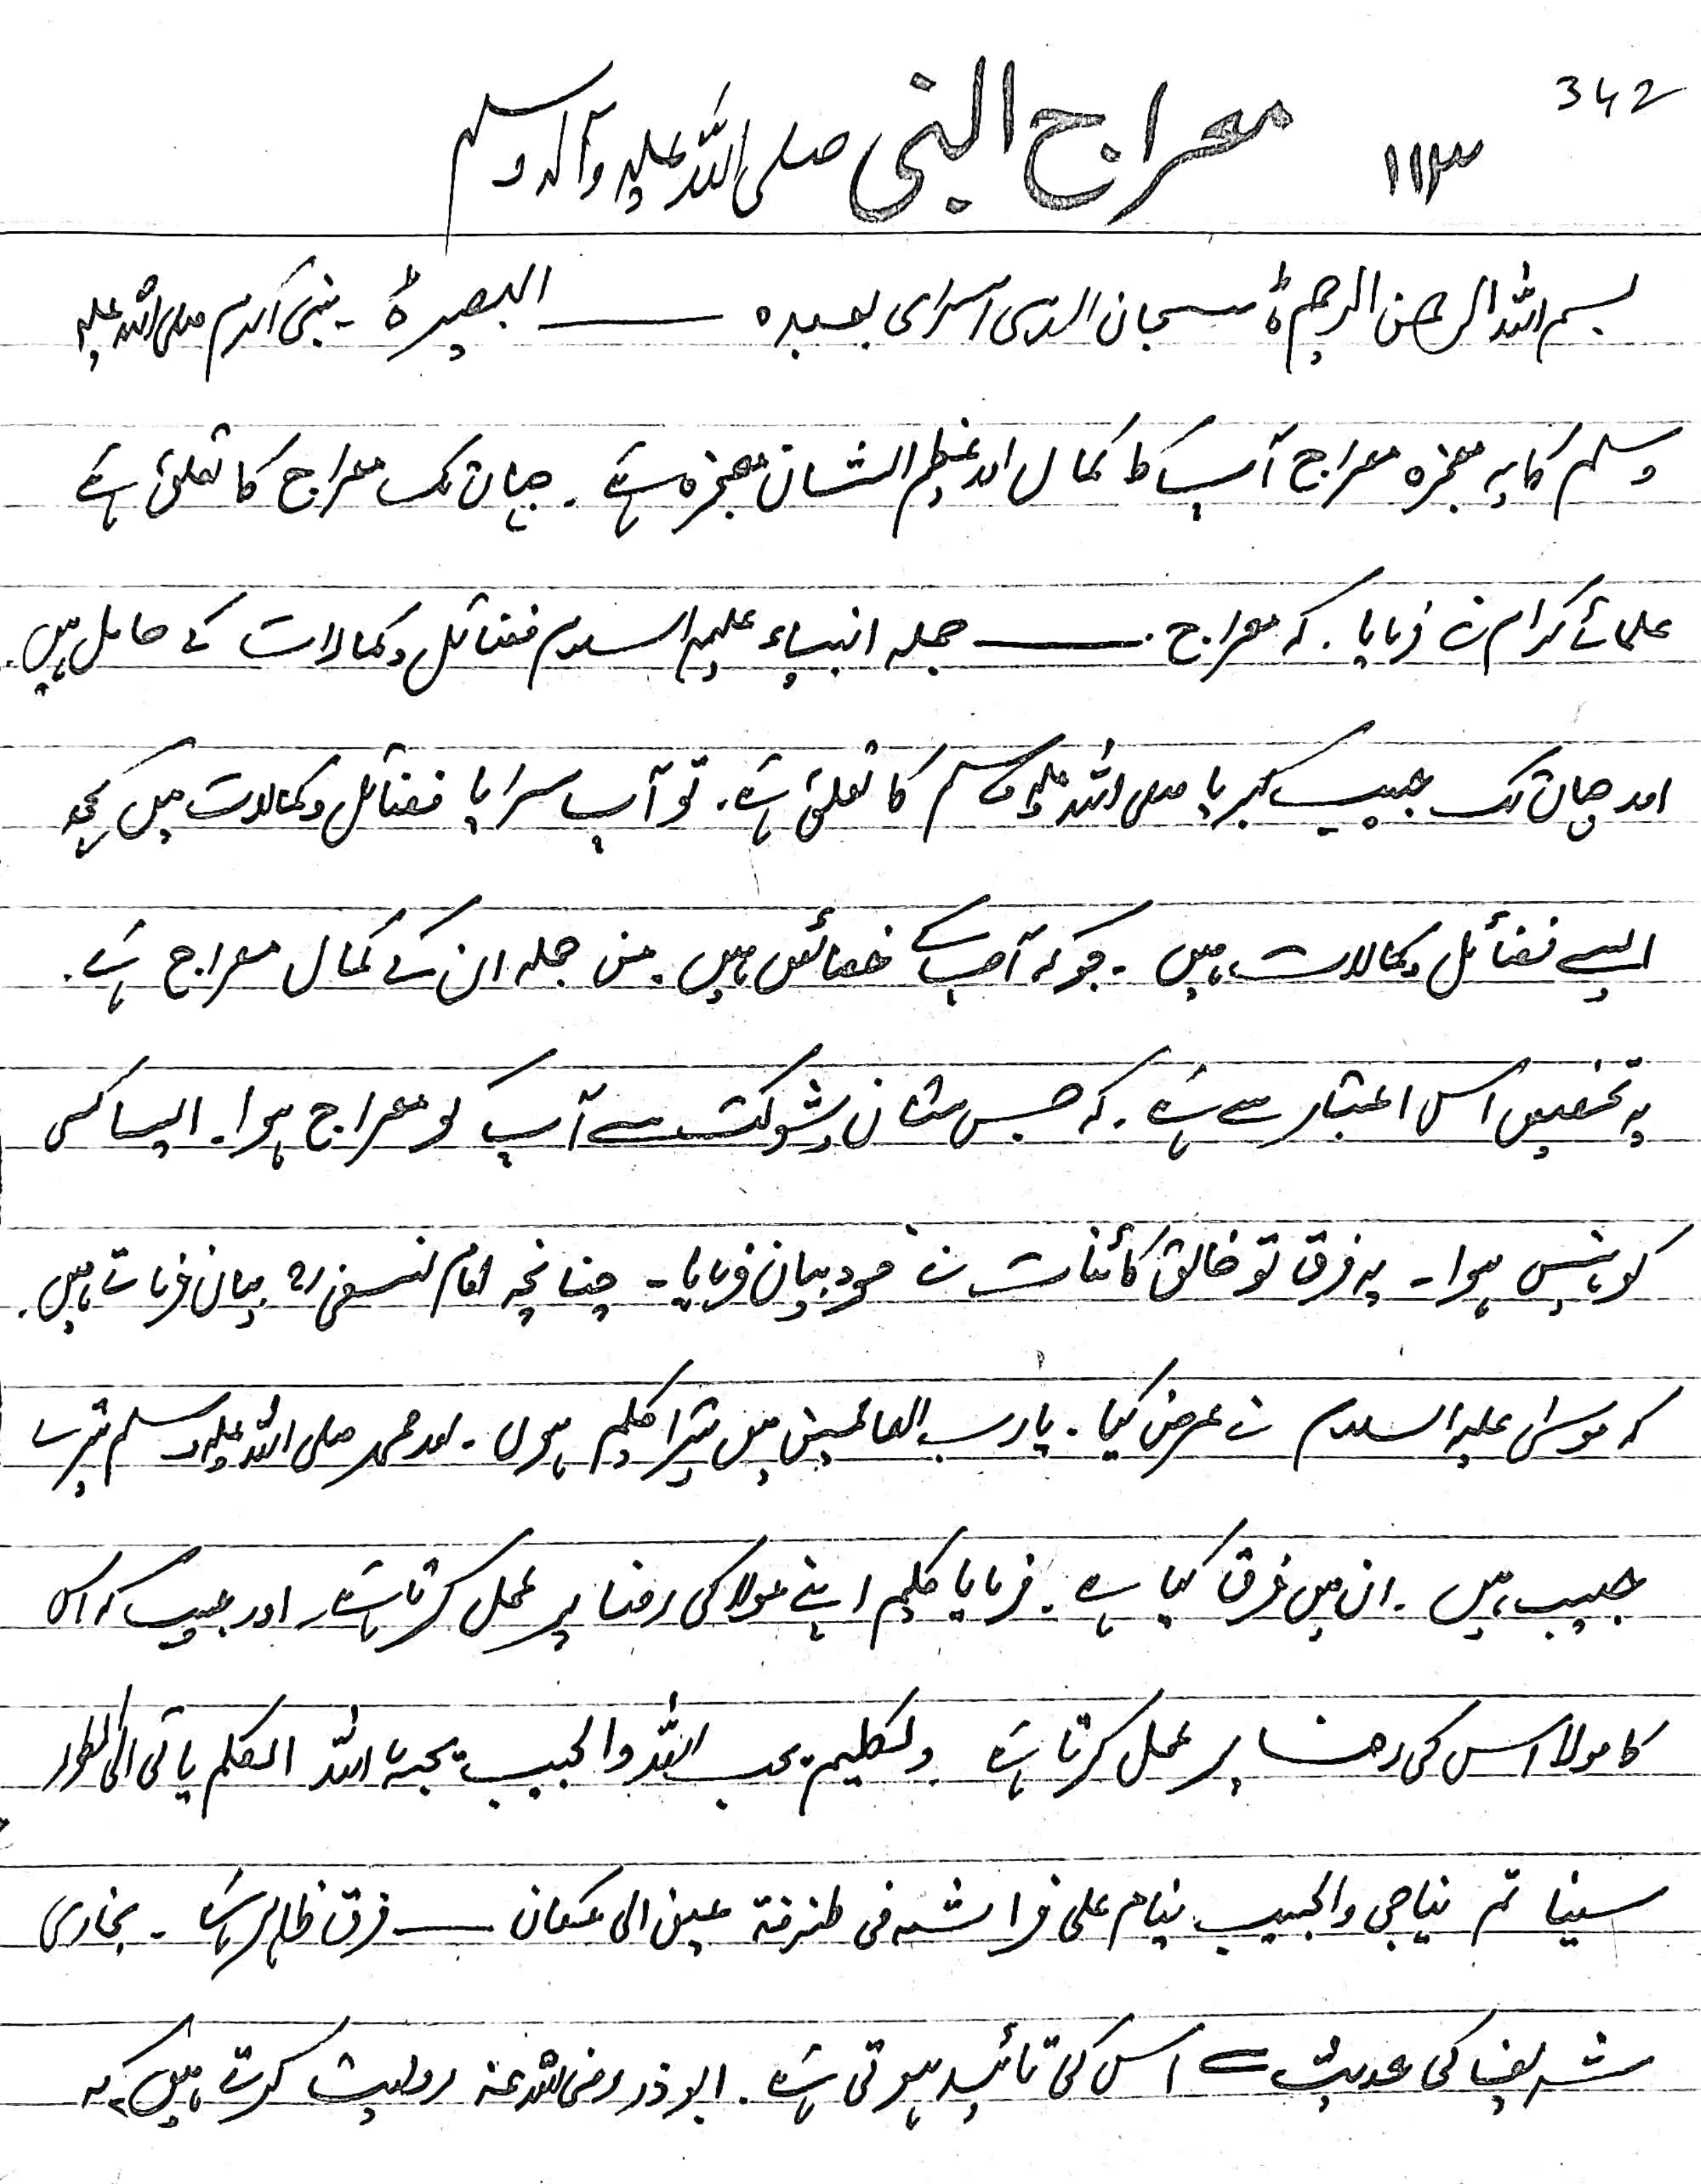 342
۱۱۳ معراج النبی صلی اللہ علیہ وآلہ وسلم
بسم اللہ الرحمن الرحیم ہ سبحان الذی اسرای بعبدہ ـــــــ البصیر ہ - نبی اکرم صلی اللہ علیہ
وسلم کا یہ معجزہ معراج آپ کا کمال اور عظیم الشان معجزہ ہے۔ جہان تک معراج کا تعلق ہے
علمائے کرام نے فرمایا۔ کہ معراج۔ ـــــــ جملہ انبیاء علیہم السلام فضائل وکمالات کے حامل ہیں۔
اور جہان تک حبیب کبریا صلی اللہ علیہ وسلم کا تعلق ہے۔ تو آپ سراپا فضائل وکمالات ہیں کچھ
ایسے فضائل وکمالات ہیں - جو کہ آپ کے خصائص ہیں۔ من جملہ ان کے کمال معراج ہے۔
یہ تخصیص اس اعتبار سے ہے۔ کہ جس شان وشوکت سے آپ کو معراج ہوا۔ ایسا کسی
کو نہیں ہوا۔ یہ فرق تو خالق کائنات نے خود بیان فرمایا۔ چنانچہ امام نسفی رح بیان فرماتے ہیں۔
کہ موسیٰ علیہ السلام نے عرض کیا۔ یا رب العالمین میں تیرا کلیم ہوں۔ اور محمد صلی اللہ علیہ وسلم تیرے
حبیب ہیں۔ ان میں فرق کیا ہے۔ فرمایا کلیم اپنے مولا کی رضا پر عمل کرتا ہے۔ اور حبیب کہ اس
کا مولا اس کی رضا پر عمل کرتا ہے ولکلیم یحب اللہ والحبیب یحبہ اللہ الکلیم یاتی الی الطور
سینا ثم یناجی والحبیب ینام علی فراشہ فی طرفۃ عین الی مکان ـــــــ فرق ظاہر ہے۔ بخاری
شریف کی حدیث سے اس کی تائید ہوتی ہے۔ ابوذر رضی اللہ عنہ روایت کرتے ہیں کہ